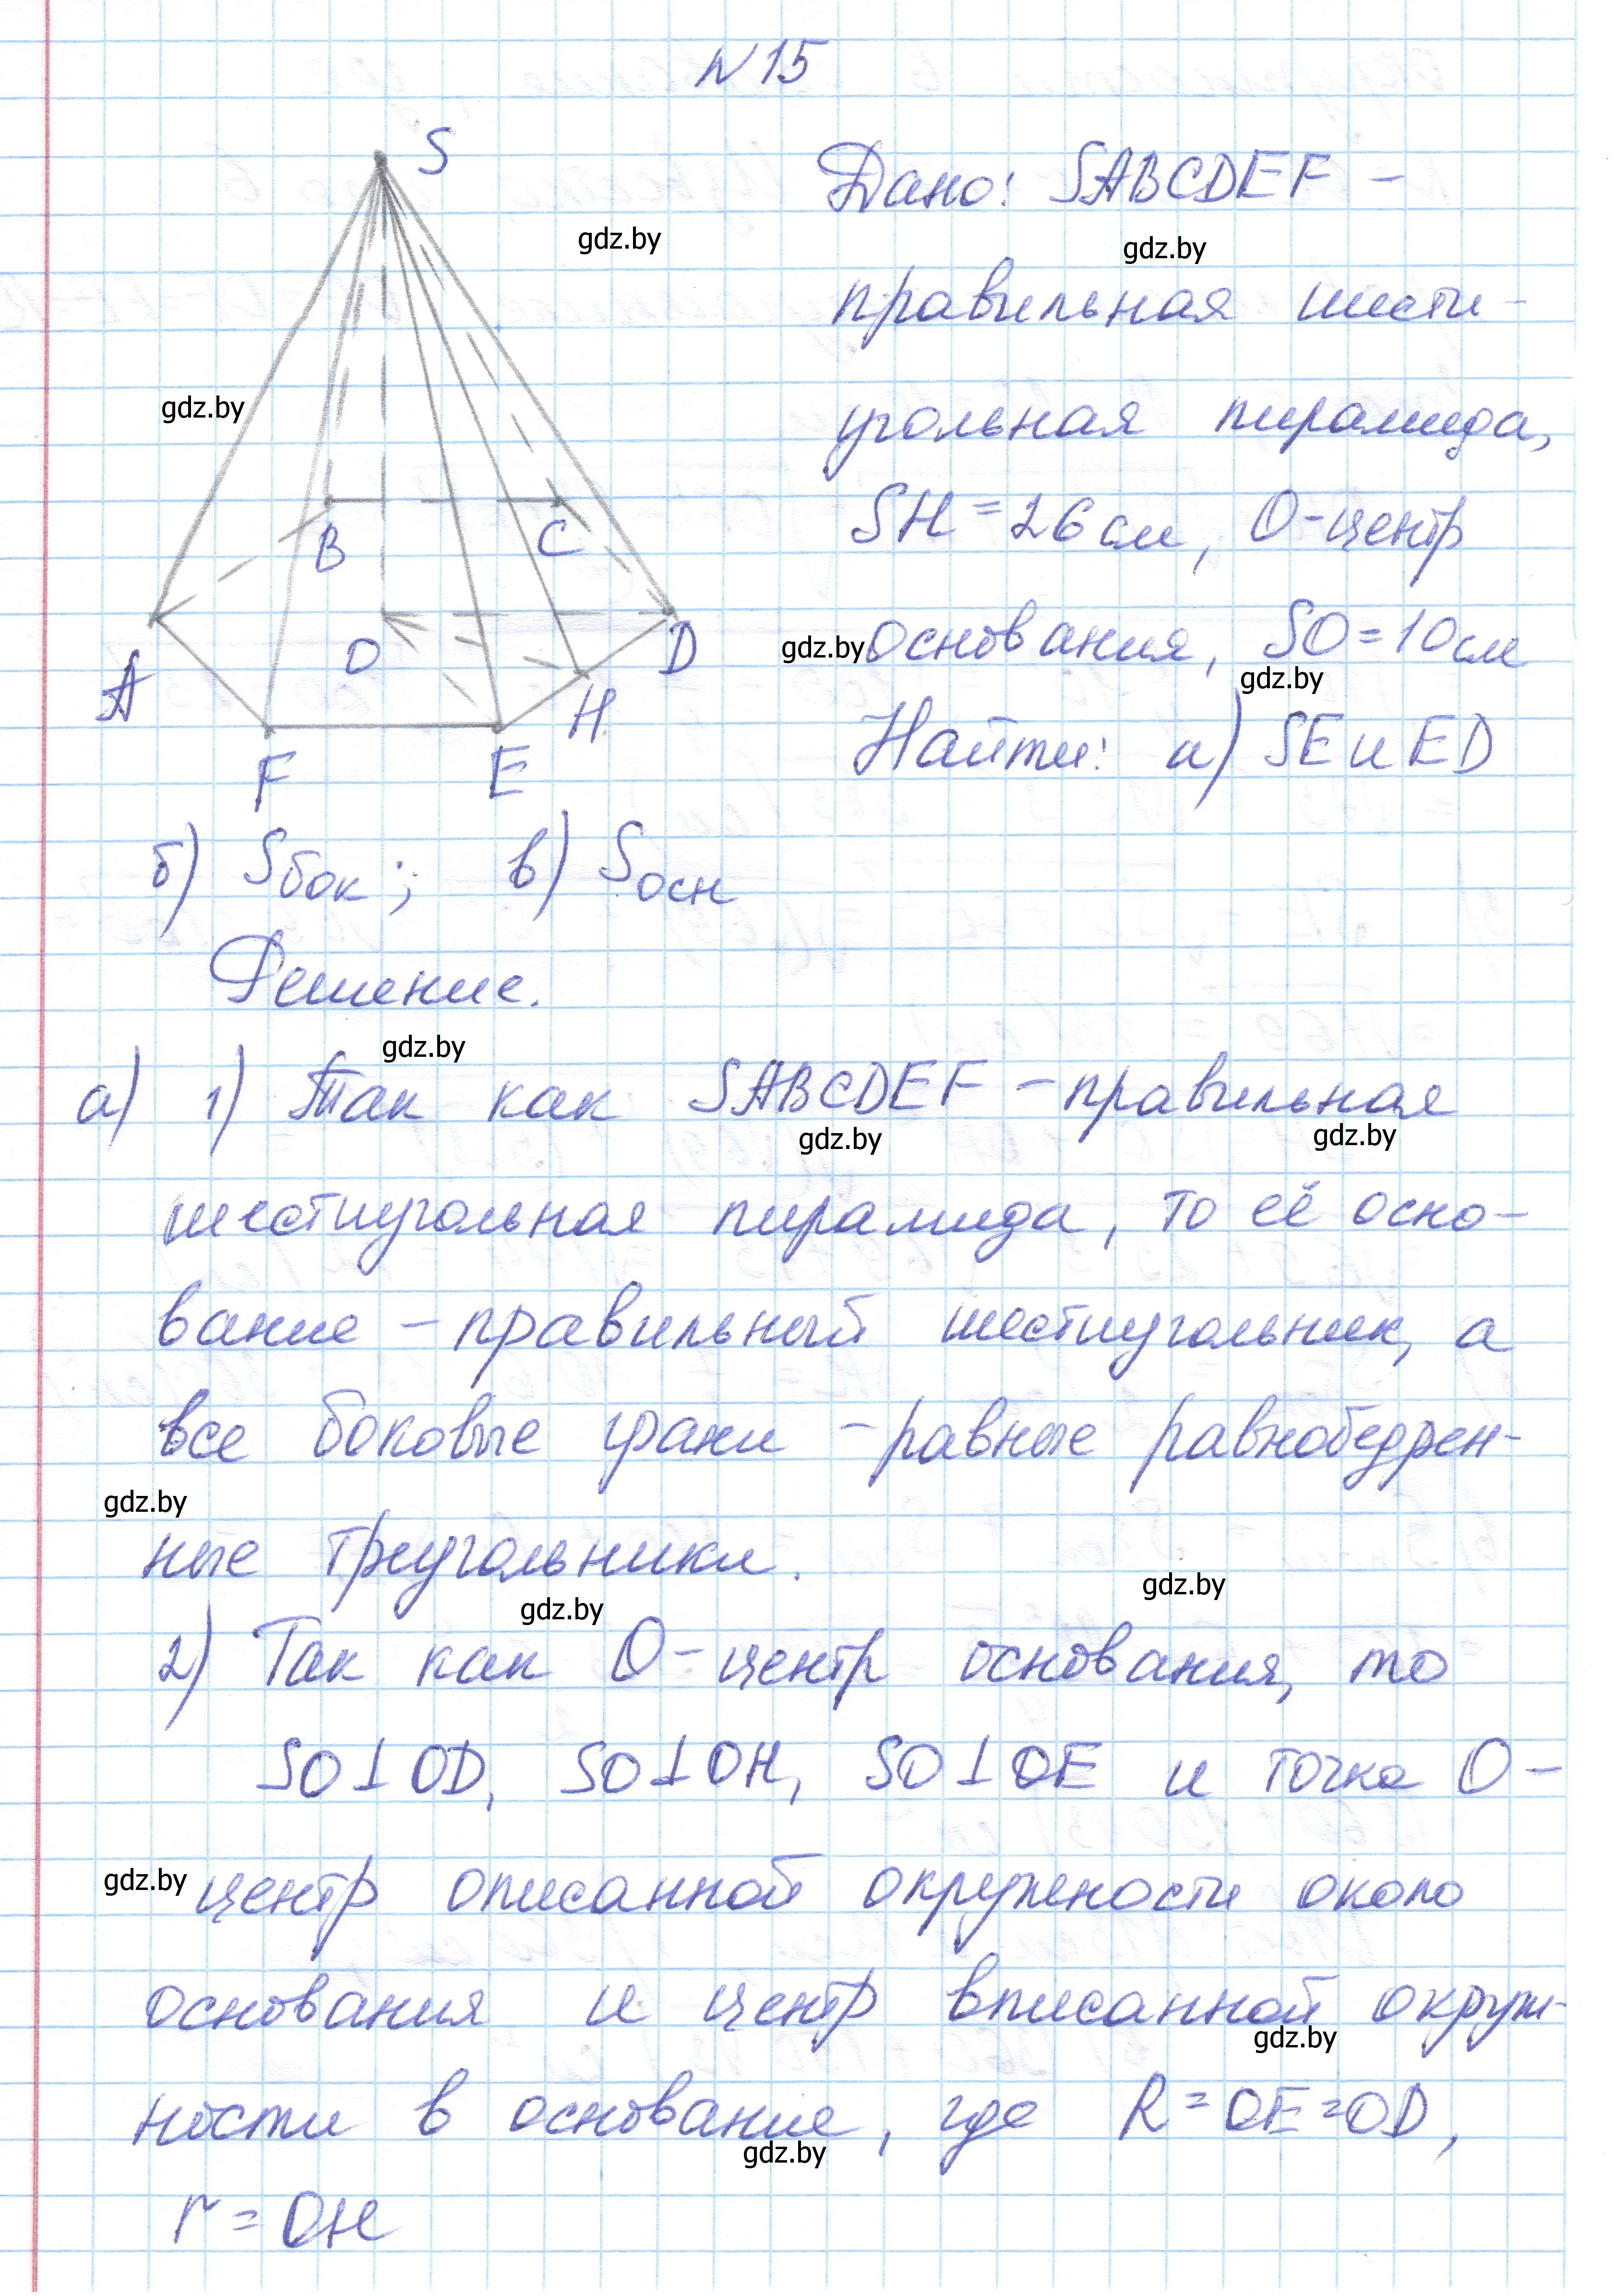 N 15
S
Дано: SABCDEF –
gdz.by
gdz.by
правильная шести-
gdz.by
угольная пирамида,
B
C
SH = 26 см, O-центр
A
O
D
gdz.by
основания, SO = 10 см
gdz.by
H
F
E
Найти: а) SE и ED
б) Sбок; в) Sосн
Решение.
gdz.by
а) 1) Так как SABCDEF – правильная
gdz.by
gdz.by
шестиугольная пирамида, то её осно-
вание – правильный шестиугольник, а
все боковые грани – равные равнобедрен-
gdz.by
ные треугольники.
gdz.by
gdz.by
2) Так как O-центр основания, то
SO⊥OD, SO⊥OH, SO⊥OE и точка O –
gdz.by
центр описанной окружности около
основания и центр вписанной окруж-
gdz.by
ности в основание, где R = OE = OD,
gdz.by
r = OH